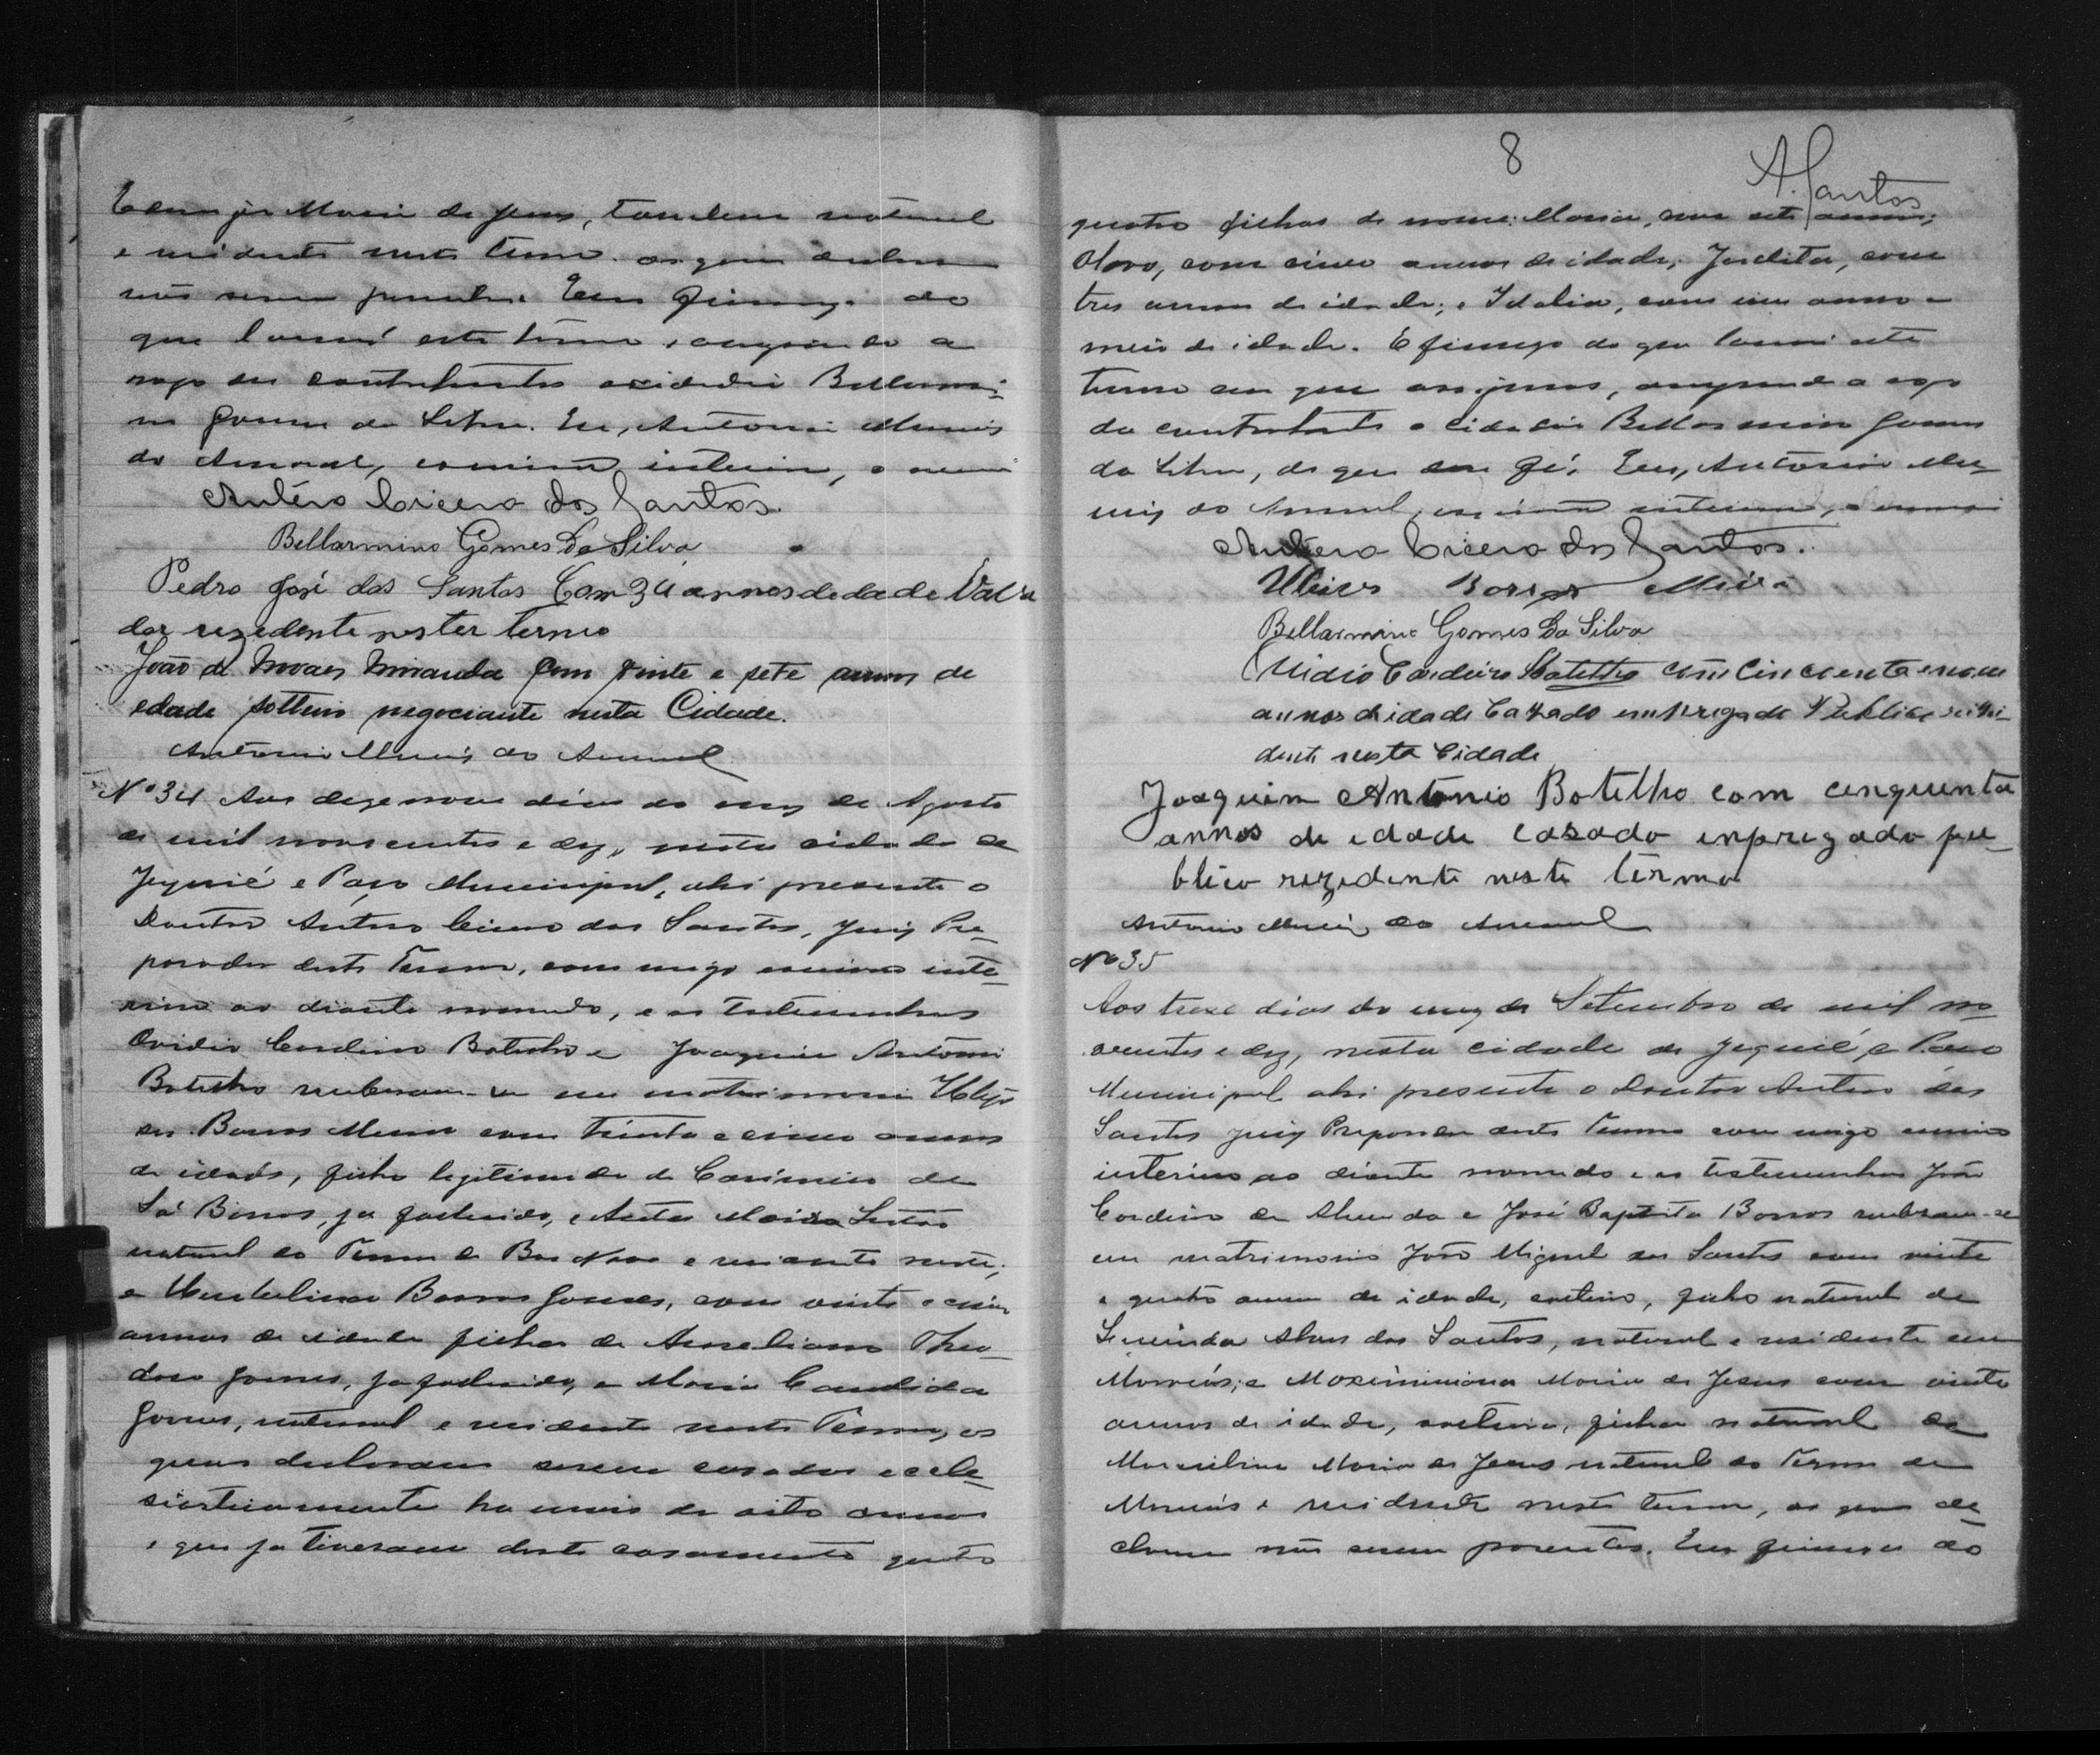 Maria de Jesus, tambem natural
e residente neste termo. os quais declaram
não serem parentes. Em firmeza do
que lavrei este termo, assignando a
rogo dos contrahentes o cidadão Bellarmi-
no Gomes da Silva. Eu, Antonio Muniz
do Amaral, escrivão interino, o escrevi
Antéro Cicero dos Santos.
Bellarmino Gomes Da Silva
Pedro José dos Santos Com 34 annos dedade
dor rezedente nester termo
João de Moraes Miranda com vinte e sete annos de
edade solteiro negociante nesta Cidade.
Antonio Muniz do Amaral
Nº 34 Aos dezenove dias do mez de Agosto
de mil novecentos e dez, nesta cidade de
Jequié e Paço Municipal, ahi presente o
Doutor Antero Cicero dos Santos, Juiz Pre-
parador deste Termo, commigo escrivão inte-
rino ao diante nomeado, e as testemunhas
Ovidio Cordeiro Botelho e Joaquim Antonio
Botelho receberam-se em matrimonio Ulys-
ses Borges Meira com trinta e cinco annos
de idade, filho legitimado de Casimiro de
Sá Borges, ja fallecido, e Maria
natural do Termo de Bôa Nova e residente neste;
e Umbelina Borges Gomes, com vinte e cinco
annos de idade filha de Aureliano Theo-
doro Gomes, ja fallecido, e Maria Candida
Gomes, natural e residente neste Termo, os
quaes declararam serem casados eccle-
siasticamente ha mais de oito annos
e que ja tiveram deste casamento quatro
8
A. Santos
quatro filhos de nome: Maria, com sete annos;
Olavo, com cinco annos de idade; Jardita, com
tres annos de idade; e Idalia, com um anno e
meio de idade. E firmeza do que lavrei este
termo em que assignam, assignando a rogo
da contrahente o cidadão Bellarmino Gomes
da Silva, do que dou fé. Eu, Antonio Mu-
niz do Amaral, escrivão interino, o escrevi
Antéro Cicero dos Santos.
Ulices Borges Meira
Bellarmino Gomes Da Silva
Ovidio Cordeiro Botelho com cincoenta e nove
annos de idade Cazado empregado Publico rezi-
dente nesta Cidade
Joaquim Antonio Botelho com cenquenta
annos de edade casado enpregado pu-
blico rezedente neste têrmo
Antonio Muniz do Amaral
Nº 35
Aos treze dias do mez de Setembro de mil no-
vecentos e dez, nesta cidade de Jequié, e Paço
Municipal ahi presente o Doutor Antero dos
Santos Juiz Preparador deste Termo commigo escrivão
interino ao diante nomeado e as testemunhas João
Cordeiro de Almeida e José Baptista Borges receberam-se
em matrimonio João Miguel dos Santos com vinte
e quatro annos de idade, solteiro, filho natural de
Alves dos Santos, natural e residente em
Maracás; e Maximiniana Maria de Jesus com vinte
annos de idade, solteira, filha natural de
Marcellina Maria de Jesus natural do Termo de
Maracás e residente neste termo, os quaes de-
claram não serem parentes. Em firmeza do